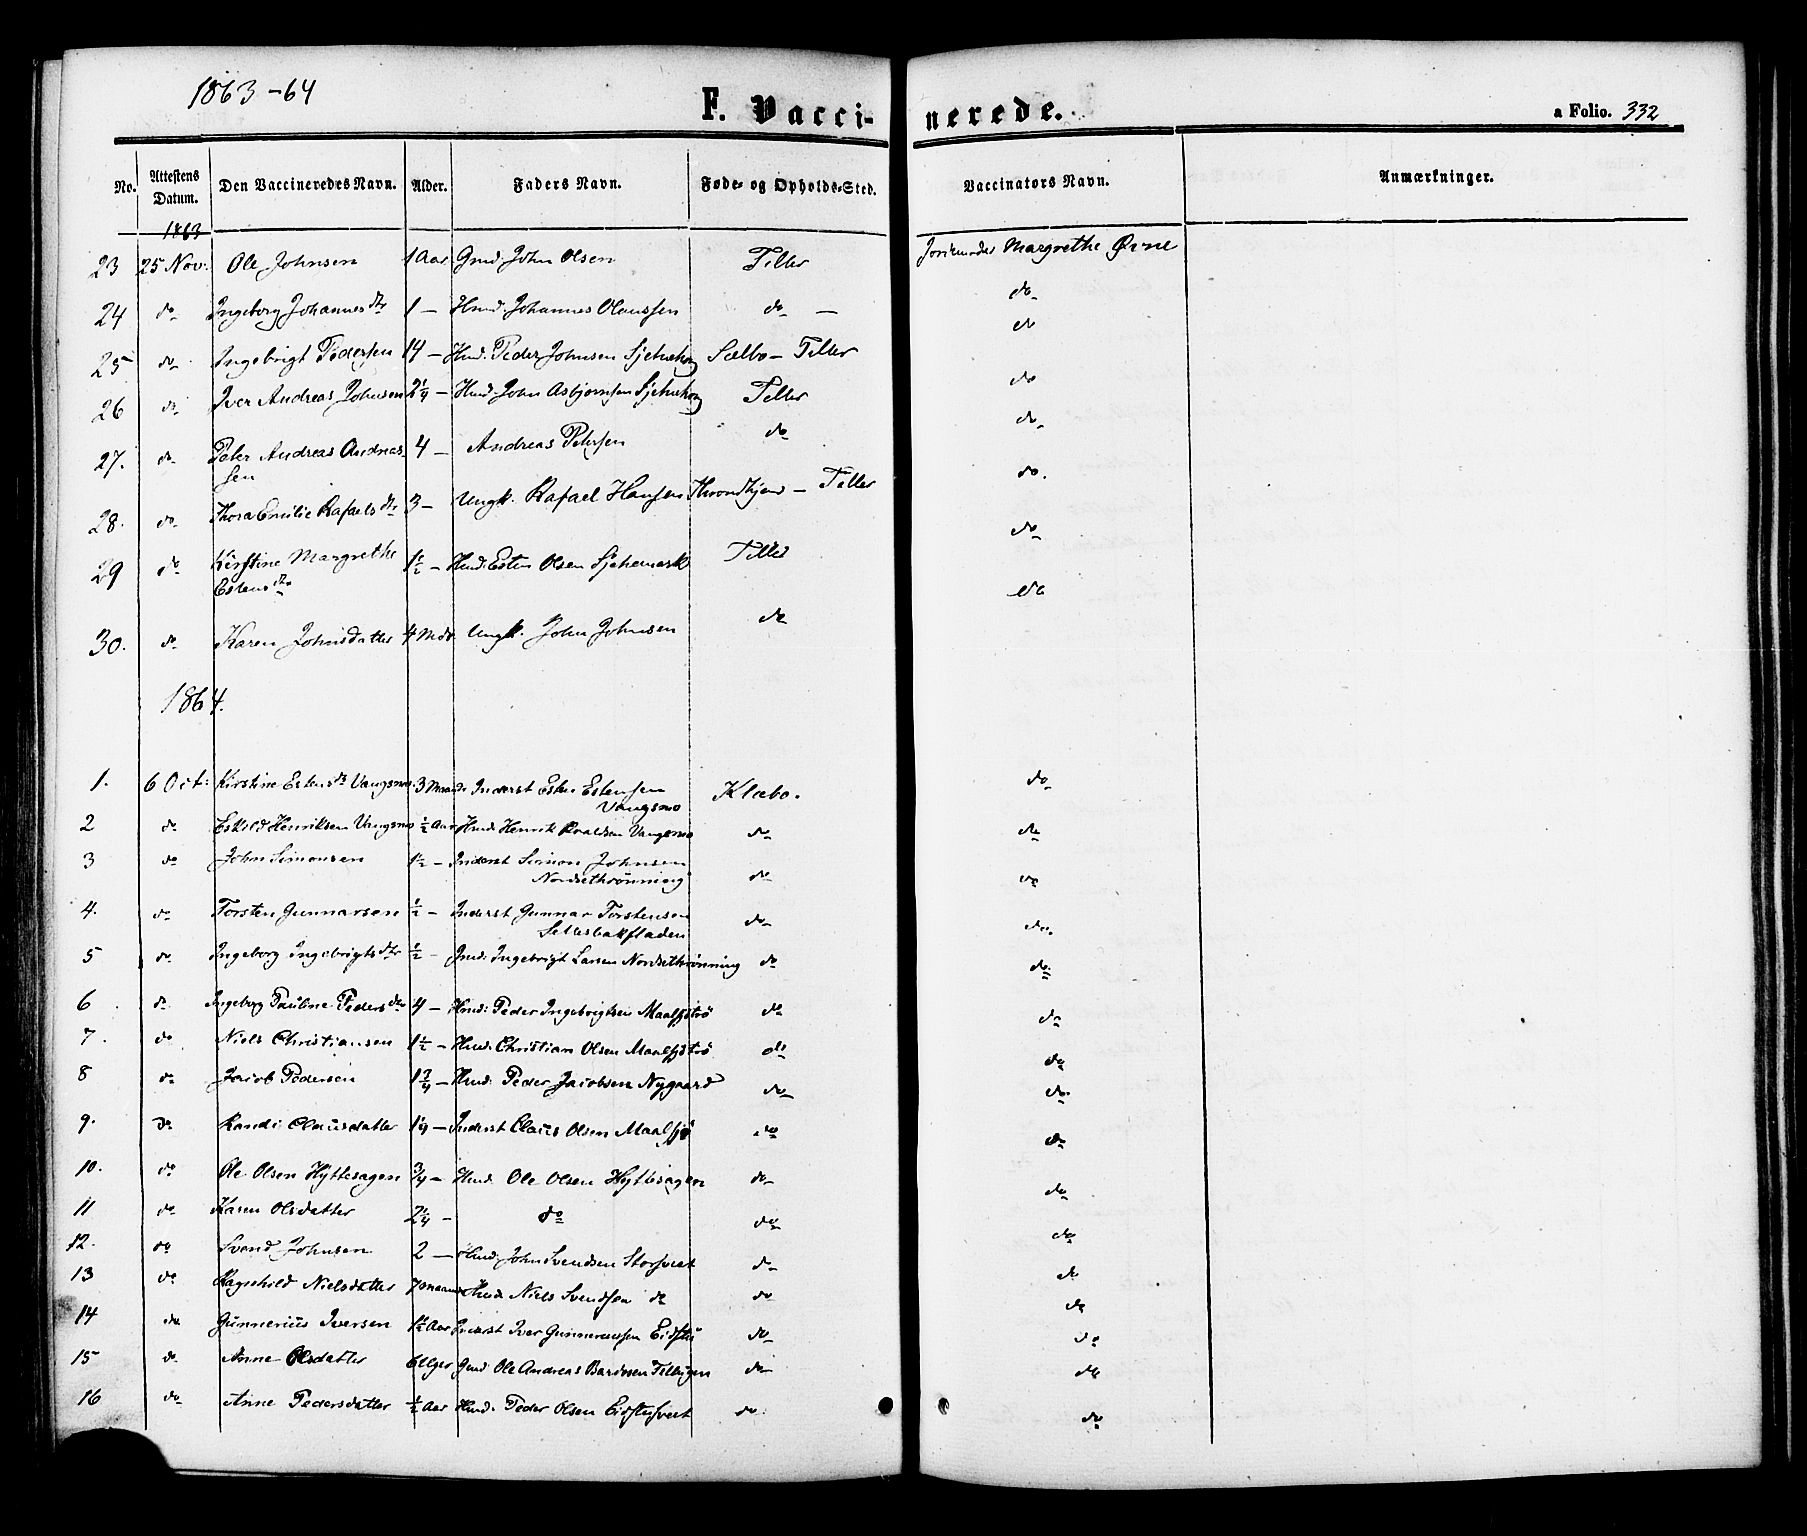 1863-64
F. Vaccinerede.
a Folio. 332
No. Attestens Datum. Den Vaccineredes Navn. Alder. Faders Navn. Føde- og Opholds-Sted. Vaccinators Navn. Anmærkninger.
1863
23 25 Nov: Ole Johnsen 1 Aar Gmd. John Olsen Tiller Jordemoder Margrethe Øvne
24 do Ingeborg Johannesdtr 1 — Hmd. Johannes Olaussen do — do
25 do Ingebrigt Pedersen 14 — Hmd. Peder Johnsen Sælbo — Tiller do
26 do Iver Andreas Johnsen 2¼ — Hmd. John Asbjørnsen Tiller do
27. do Peter Andreas Andreas-
sen 4 — Andreas Petersen do do
28. do Thora Emilie Rafaelsdtr 3 — Ungk. Rafael Hansen Throndhjem — Tiller do.
29 do Kirstine Margrethe
Estensdtr 1½ — Hmd. Esten Olsen Tiller do
30. do Karen Johnsdatter 4 Mdr. Ungk. John Johnsen do do
1864.
1. 6 Oct: Kirstine Estensdtr Vangsmo 3 Maan Inderst Esten Estensen
Vangsmo Klæbo. do
2 do Eskild Henriksen Vangsmo ½ Aar Hmd. Henrik Vangsmo do do
3 do John Simonsen 1½ — Inderst Simon Johnsen
Nordsethrønning do do
4. do Torsten Gunnarsen ½ — Inderst Gunnar Torstensen
Selesbakfladen do do
5 do Ingeborg Ingebrigtsdtr ½ — Hmd: Ingebrigt Larsen Nordsethrønning do do
6 do Ingeborg Pauline Pedersdtr 4 — Hmd: Peder Ingebrigtsen Maalsjøtrø do do
7. do Niels Christiansen 1½ — Hmd. Christian Olsen Maalsjøtrø do do
8 do Jacob Pedersen 1¾ — Hmd: Peder Jacobsen Nygaard do do
9. do Randi Clausdatter 1¼ — Inderst Claus Olsen Maalsjø do do
10. do Ole Olsen Hyttesagen ¾ — Hmd. Ole Olsen Hyttesagen do do
11 do Karen Olsdatter 2¼ — do do do
12. do Svend Johnsen 2 — Hmd: John Svendsen Storsvert do do
13 do Ragnhild Nielsdatter 7 Maan Hmd. Niels Svendsen do do do
14 do Gunnerius Iversen 1½ Aar Inderst Iver Gunneriussen Eidstu do do
15 do Anne Olsdatter 6 Uger Gmd: Ole Andreas Bardosen Tellugen do do
16 do Anne Pedersdatter ½ Aar Hmd. Peder Olsen Eidstusvert do. do